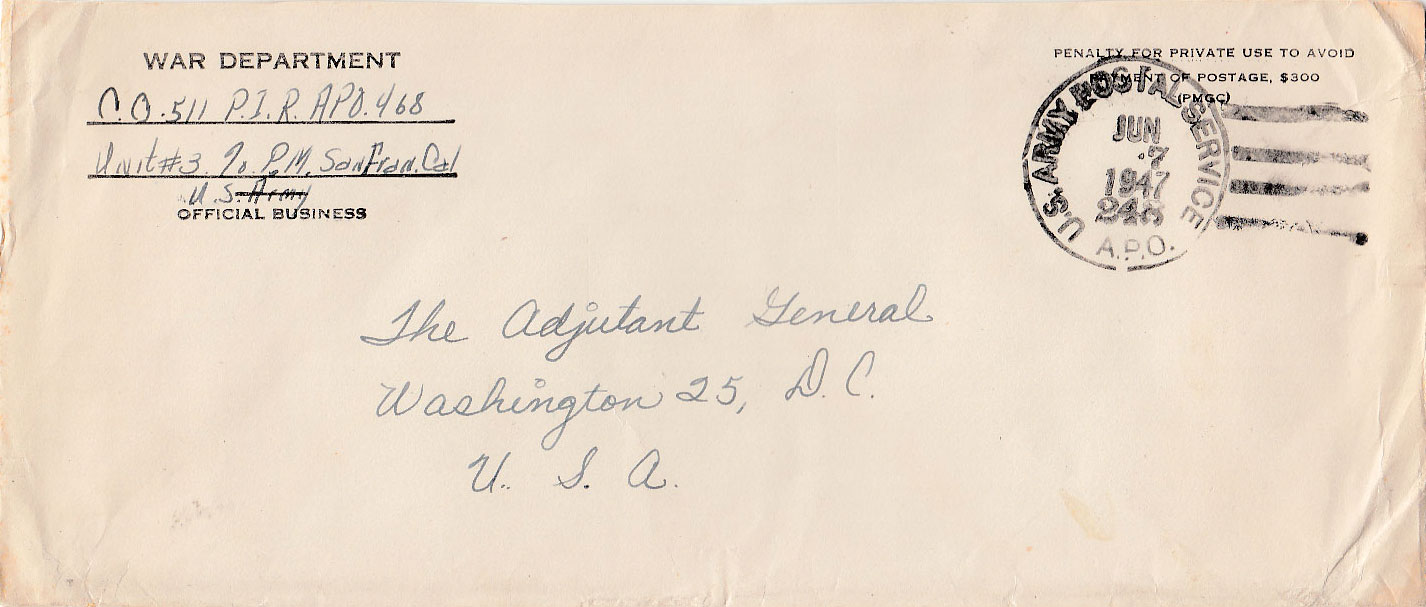 WAR DEPARTMENT
C.O. 511 P.I.R. APO. 468
Unit #3 % P.M. San Fran. Cal
U.S. Army
OFFICIAL BUSINESS
PENALTY FOR PRIVATE USE TO AVOID
PAYMENT OF POSTAGE, $300
(PMGC)
U.S. ARMY POSTAL SERVICE
JUN
7
1947
A.P.O.
The Adjutant General
Washington 25, D.C.
U. S. A.